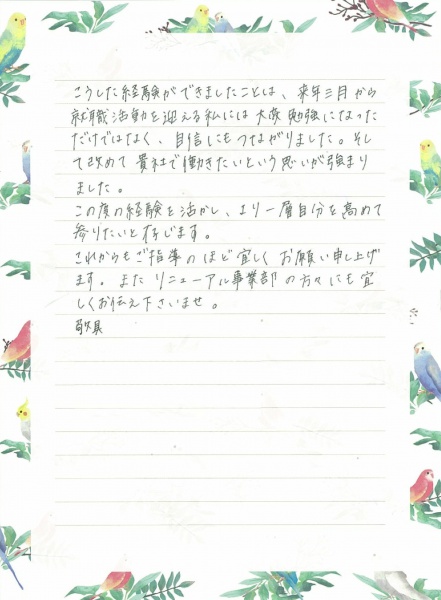 こうした経験ができましたことは、来年三月から
就職活動を迎える私には大変勉強になった
だけではなく、自信にもつながりました。そし
て改めて貴社で働きたいという思いが強まり
ました。
この度の経験を活かし、より一層自分を高めて
参りたいと存じます。
これからもご指導のほど宜しくお願い申し上げ
ます。またリニューアル事業部の方々にも宜
しくお伝え下さいませ。
敬具